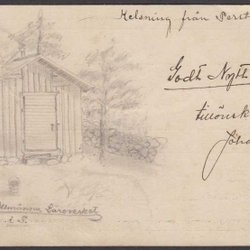 Helsning från Perst
Godt Nytt
tillönsk
Joha
Läroverket